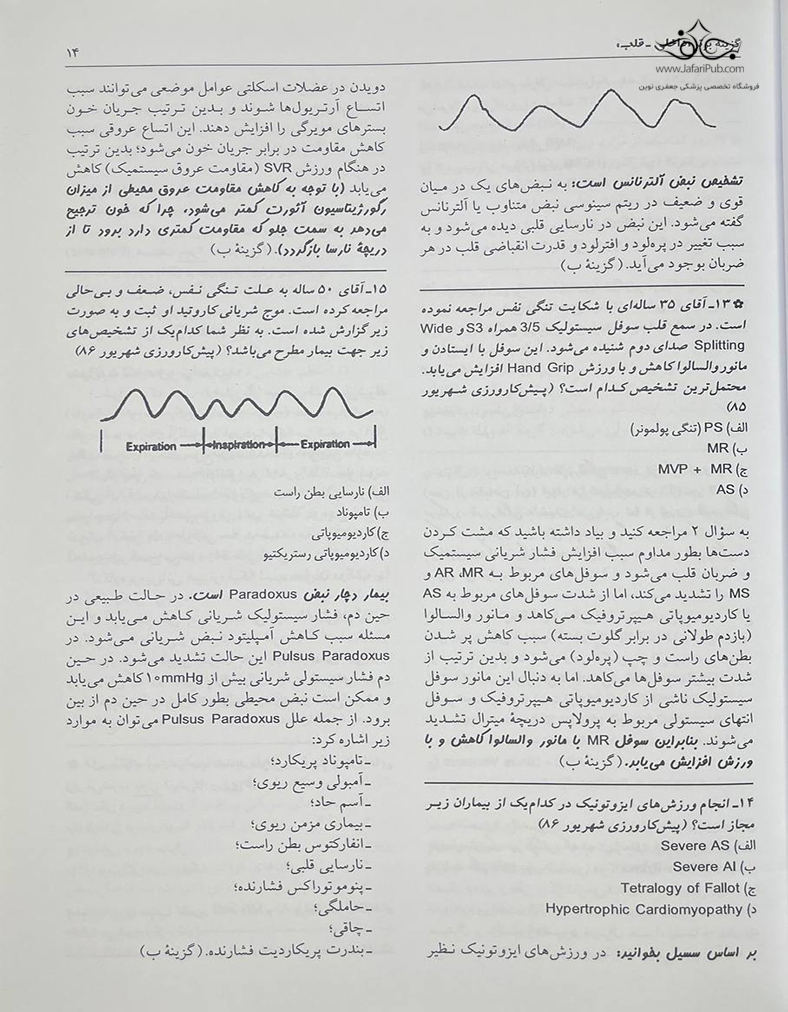 گزینه برتر «داخلی - قلب»
۱۴
www.JafariPub.com
فروشگاه تخصصی پزشکی جعفری نوین
تشخیص نبض آلترنانس است: به نبض‌های یک در میان
قوی و ضعیف در ریتم سینوسی نبض متناوب یا آلترنانس
گفته می‌شود. این نبض در نارسایی قلبی دیده می‌شود و به
سبب تغییر در پره‌لود و افترلود و قدرت انقباضی قلب در هر
ضربان بوجود می‌آید. (گزینهٔ ب)
✿ ۱۳ـ آقای ۳۵ ساله‌ای با شکایت تنگی نفس مراجعه نموده
است. در سمع قلب سوفل سیستولیک 3/5 همراه S3 و Wide
Splitting صدای دوم شنیده می‌شود. این سوفل با ایستادن و
مانور والسالوا کاهش و با ورزش Hand Grip افزایش می‌یابد.
محتمل‌ترین تشخیص کدام است؟ (پیش‌کارورزی شهریور
۸۵)
الف) PS (تنگی پولمونر)
ب) MR
ج) MVP + MR
د) AS
به سؤال ۲ مراجعه کنید و بیاد داشته باشید که مشت کردن
دست‌ها بطور مداوم سبب افزایش فشار شریانی سیستمیک
و ضربان قلب می‌شود و سوفل‌های مربوط به AR ،MR و
MS را تشدید می‌کند، اما از شدت سوفل‌های مربوط به AS
یا کاردیومیوپاتی هیپرتروفیک می‌کاهد و مانور والسالوا
(بازدم طولانی در برابر گلوت بسته) سبب کاهش پر شدن
بطن‌های راست و چپ (پره‌لود) می‌شود و بدین ترتیب از
شدت بیشتر سوفل‌ها می‌کاهد. اما به دنبال این مانور سوفل
سیستولیک ناشی از کاردیومیوپاتی هیپرتروفیک و سوفل
انتهای سیستولی مربوط به پرولاپس دریچهٔ میترال تشدید
می‌شوند. بنابراین سوفل MR با مانور والسالوا کاهش و با
ورزش افزایش می‌یابد. (گزینهٔ ب)
۱۴ـ انجام ورزش‌های ایزوتونیک در کدام‌یک از بیماران زیر
مجاز است؟ (پیش‌کارورزی شهریور ۸۶)
الف) Severe AS
ب) Severe AI
ج) Tetralogy of Fallot
د) Hypertrophic Cardiomyopathy
بر اساس سسیل بخوانید: در ورزش‌های ایزوتونیک نظیر
دویدن در عضلات اسکلتی عوامل موضعی می‌توانند سبب
اتساع آرتریول‌ها شوند و بدین ترتیب جریان خون
بسترهای مویرگی را افزایش دهند. این اتساع عروقی سبب
کاهش مقاومت در برابر جریان خون می‌شود؛ بدین ترتیب
در هنگام ورزش SVR (مقاومت عروق سیستمیک) کاهش
می‌یابد (با توجه به کاهش مقاومت عروق محیطی از میزان
رگورژیتاسیون آئورت کمتر می‌شود، چرا که خون ترجیح
می‌دهد به سمت جلو که مقاومت کمتری دارد برود تا از
دریچهٔ نارسا بازگردد). (گزینهٔ ب)
۱۵ـ آقای ۵۰ ساله به علت تنگی نفس، ضعف و بی‌حالی
مراجعه کرده است. موج شریانی کاروتید او ثبت و به صورت
زیر گزارش شده است. به نظر شما کدام‌یک از تشخیص‌های
زیر جهت بیمار مطرح می‌باشد؟ (پیش‌کارورزی شهریور ۸۶)
Expiration Inspiration Expiration
الف) نارسایی بطن راست
ب) تامپوناد
ج) کاردیومیوپاتی
د) کاردیومیوپاتی رستریکتیو
بیمار دچار نبض Paradoxus است. در حالت طبیعی در
حین دم، فشار سیستولیک شریانی کاهش می‌یابد و این
مسئله سبب کاهش آمپلیتود نبض شریانی می‌شود. در
Pulsus Paradoxus این حالت تشدید می‌شود. در حین
دم فشار سیستولی شریانی بیش از ۱۰mmHg کاهش می‌یابد
و ممکن است نبض محیطی بطور کامل در حین دم از بین
برود. از جمله علل Pulsus Paradoxus می‌توان به موارد
زیر اشاره کرد:
ـ تامپوناد پریکارد؛
ـ آمبولی وسیع ریوی؛
ـ آسم حاد؛
ـ بیماری مزمن ریوی؛
ـ انفارکتوس بطن راست؛
ـ نارسایی قلبی؛
ـ پنوموتوراکس فشارنده؛
ـ حاملگی؛
ـ چاقی؛
ـ بندرت پریکاردیت فشارنده. (گزینهٔ ب)